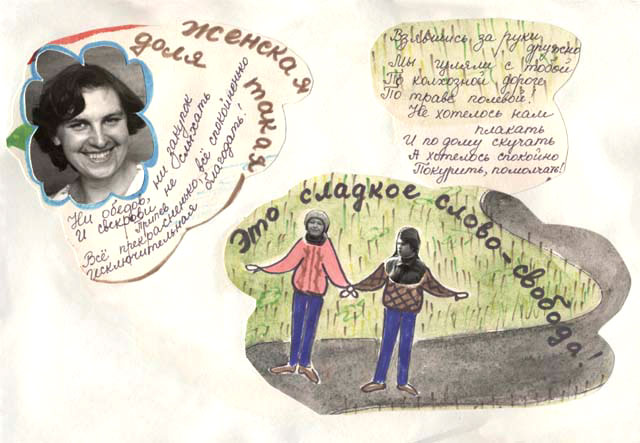 Женская
доля такая
Ни обедов, ни закуток
И свекрови не слыхать
Припев
Всё прекрасненько, всё спокойненько
Исключительная благодать!
Взявшись за руки, дружно
Мы гуляли с тобой
По колхозной дороге,
По траве полевой!
Не хотелось нам
плакать
И по дому скучать
А хотелось спокойно
Покурить, помолчать!
Это сладкое слово-свобода!